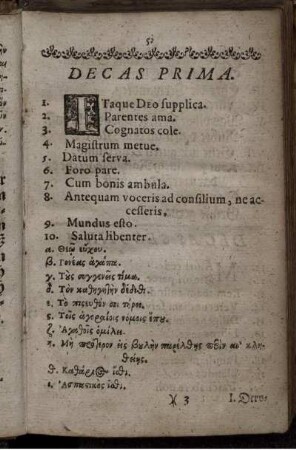 51
DECAS PRIMA.
1. ITaque DEO supplica.
2. Parentes ama.
3. Cognatos cole.
4. Magistrum metue.
5. Datum serva.
6. Foro pare.
7. Cum bonis ambula.
8. Antequam voceris ad consilium, ne ac-
cesseris.
9. Mundus esto.
10. Saluta libenter.
α. Θεῷ εὔχου.
β. Γονέας ἀγάπα.
γ. Τοὺς συγγενεῖς τίμα.
δ. Τὸν καθηγητὴν δέδιθι.
ε. Τὸ πιστευθέν σοι τήρει.
ς. Τοῖς ἀγοραίοις νόμοις ἕπου.
ζ. Ἀγαθοῖς ὁμίλει.
η. Μὴ πρότερον εἰς βουλὴν παρέλθῃς πρὶν ἂν κλη-
θείης.
θ. Καθάριος ἴσθι.
ι. Ἀσπαστικὸς ἴσθι.
)( 3 1. Decus